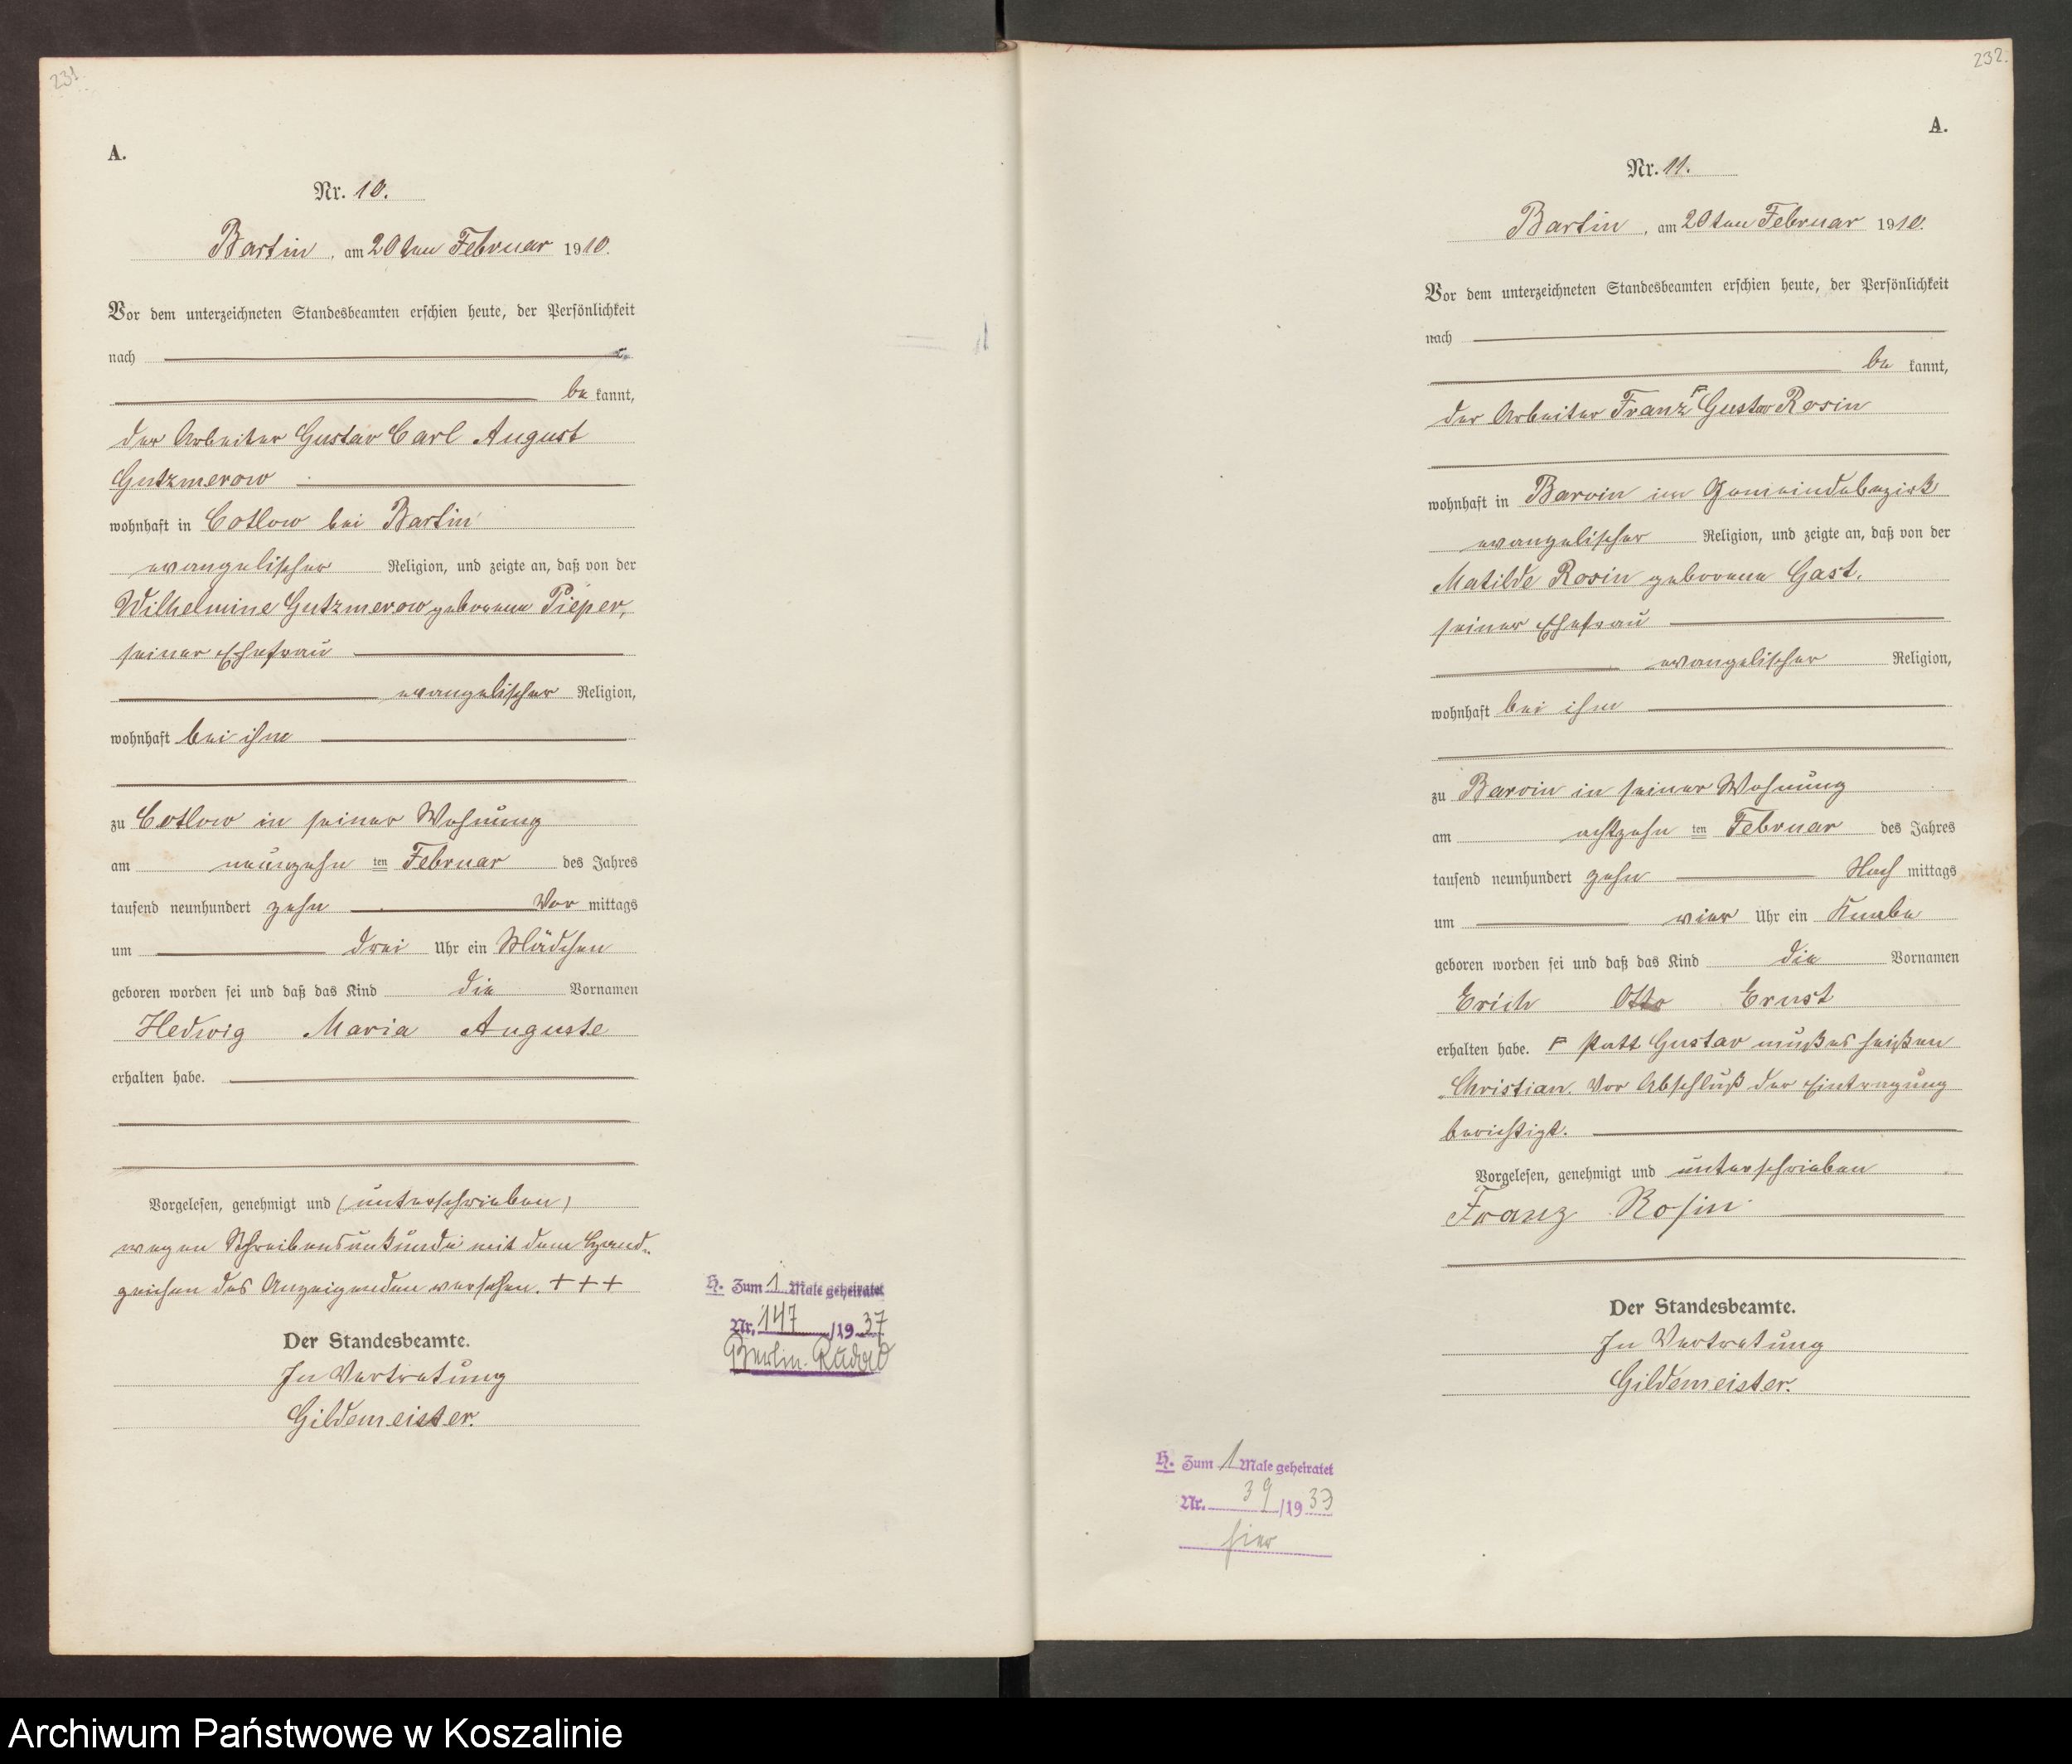 231.
A.
Nr. 10.
Bartin, am 20ten Februar 1910.
Vor dem unterzeichneten Standesbeamten erschien heute, der Persönlichkeit
nach
be kannt,
der Arbeiter Gustav Carl August
Gutzmerow
wohnhaft in Cotlow bei Bartin
evangelischer Religion, und zeigte an, daß von der
Wilhelmine Gutzmerow geborene Pieper,
seiner Ehefrau
evangelischer Religion,
wohnhaft bei ihm
zu Cotlow in seiner Wohnung
am neunzehn ten Februar des Jahres
tausend neunhundert zehn Vor mittags
um drei Uhr ein Mädchen
geboren worden sei und daß das Kind die Vornamen
Hedwig Maria Auguste
erhalten habe.
Vorgelesen, genehmigt und (unterschrieben)
wegen Schreibensunkunde mit dem Hand-
zeichen des Anzeigenden versehen. + + +
Der Standesbeamte.
In Vertretung
Gildemeister.
H. Zum 1 Male geheiratet
Nr. 147 /19 37
Berlin-Rudow
232.
A.
Nr. 11.
Bartin, am 20ten Februar 1910.
Vor dem unterzeichneten Standesbeamten erschien heute, der Persönlichkeit
nach
be kannt,
der Arbeiter Franz Gustav Rosin
wohnhaft in Barvin im Gemeindebezirk
evangelischer Religion, und zeigte an, daß von der
Matilde Rosin geborene Gast,
seiner Ehefrau
evangelischer Religion,
wohnhaft bei ihm
zu Barvin in seiner Wohnung
am achtzehn ten Februar des Jahres
tausend neunhundert zehn Nach mittags
um vier Uhr ein Knabe
geboren worden sei und daß das Kind die Vornamen
Erich Otto Ernst
erhalten habe. Statt Gustav muß es heißen
Christian. Vor Abschluß der Eintragung
berichtigt.
Vorgelesen, genehmigt und unterschrieben
Franz Rosin
Der Standesbeamte.
In Vertretung
Gildemeister.
H. Zum 1 Male geheiratet
Nr. 39 /19 37
hier
Archiwum Państwowe w Koszalinie